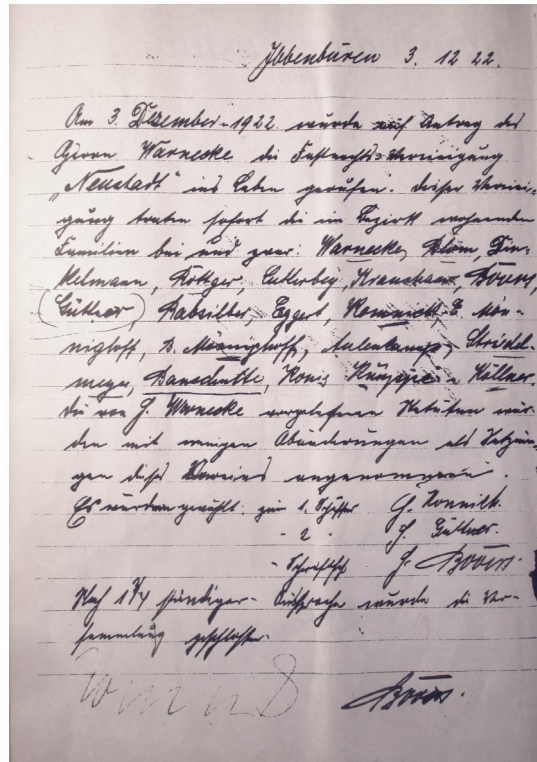 Ibbenbüren 3. 12 22.
Am 3. Dezember 1922 wurde auf Antrag des
Herrn Warnecke die Festrechts-Vereinigung
„Neustadt" ins Leben gerufen. Dieser Verei-
gung traten sofort die im Bezirk wohnenden
Familien bei und zwar: Warnecke, Blom, Din-
kelmann, Röttger, Lutterbey, Krauskopf, Booms,
Güttner, Rabsilber, Eggert, Romnick E. Mön-
nighoff, B. Mönnighoff, Aulenkamp, Strödel-
meyer, Banschutte, Konis, u Köllner.
Die von H. Warnecke vorgelesenen Statuten wur-
den mit wenigen Abänderungen als Satzun-
gen dieses Vereins angenommen.
Es wurden gewählt: zum 1. Schäffer H. Romnick.
" 2 " H. Güttner.
" Schriftfh H. Booms.
Nach 1 3/4 stündiger Aussprache wurde die Ver-
sammlung geschlossen.
Booms.